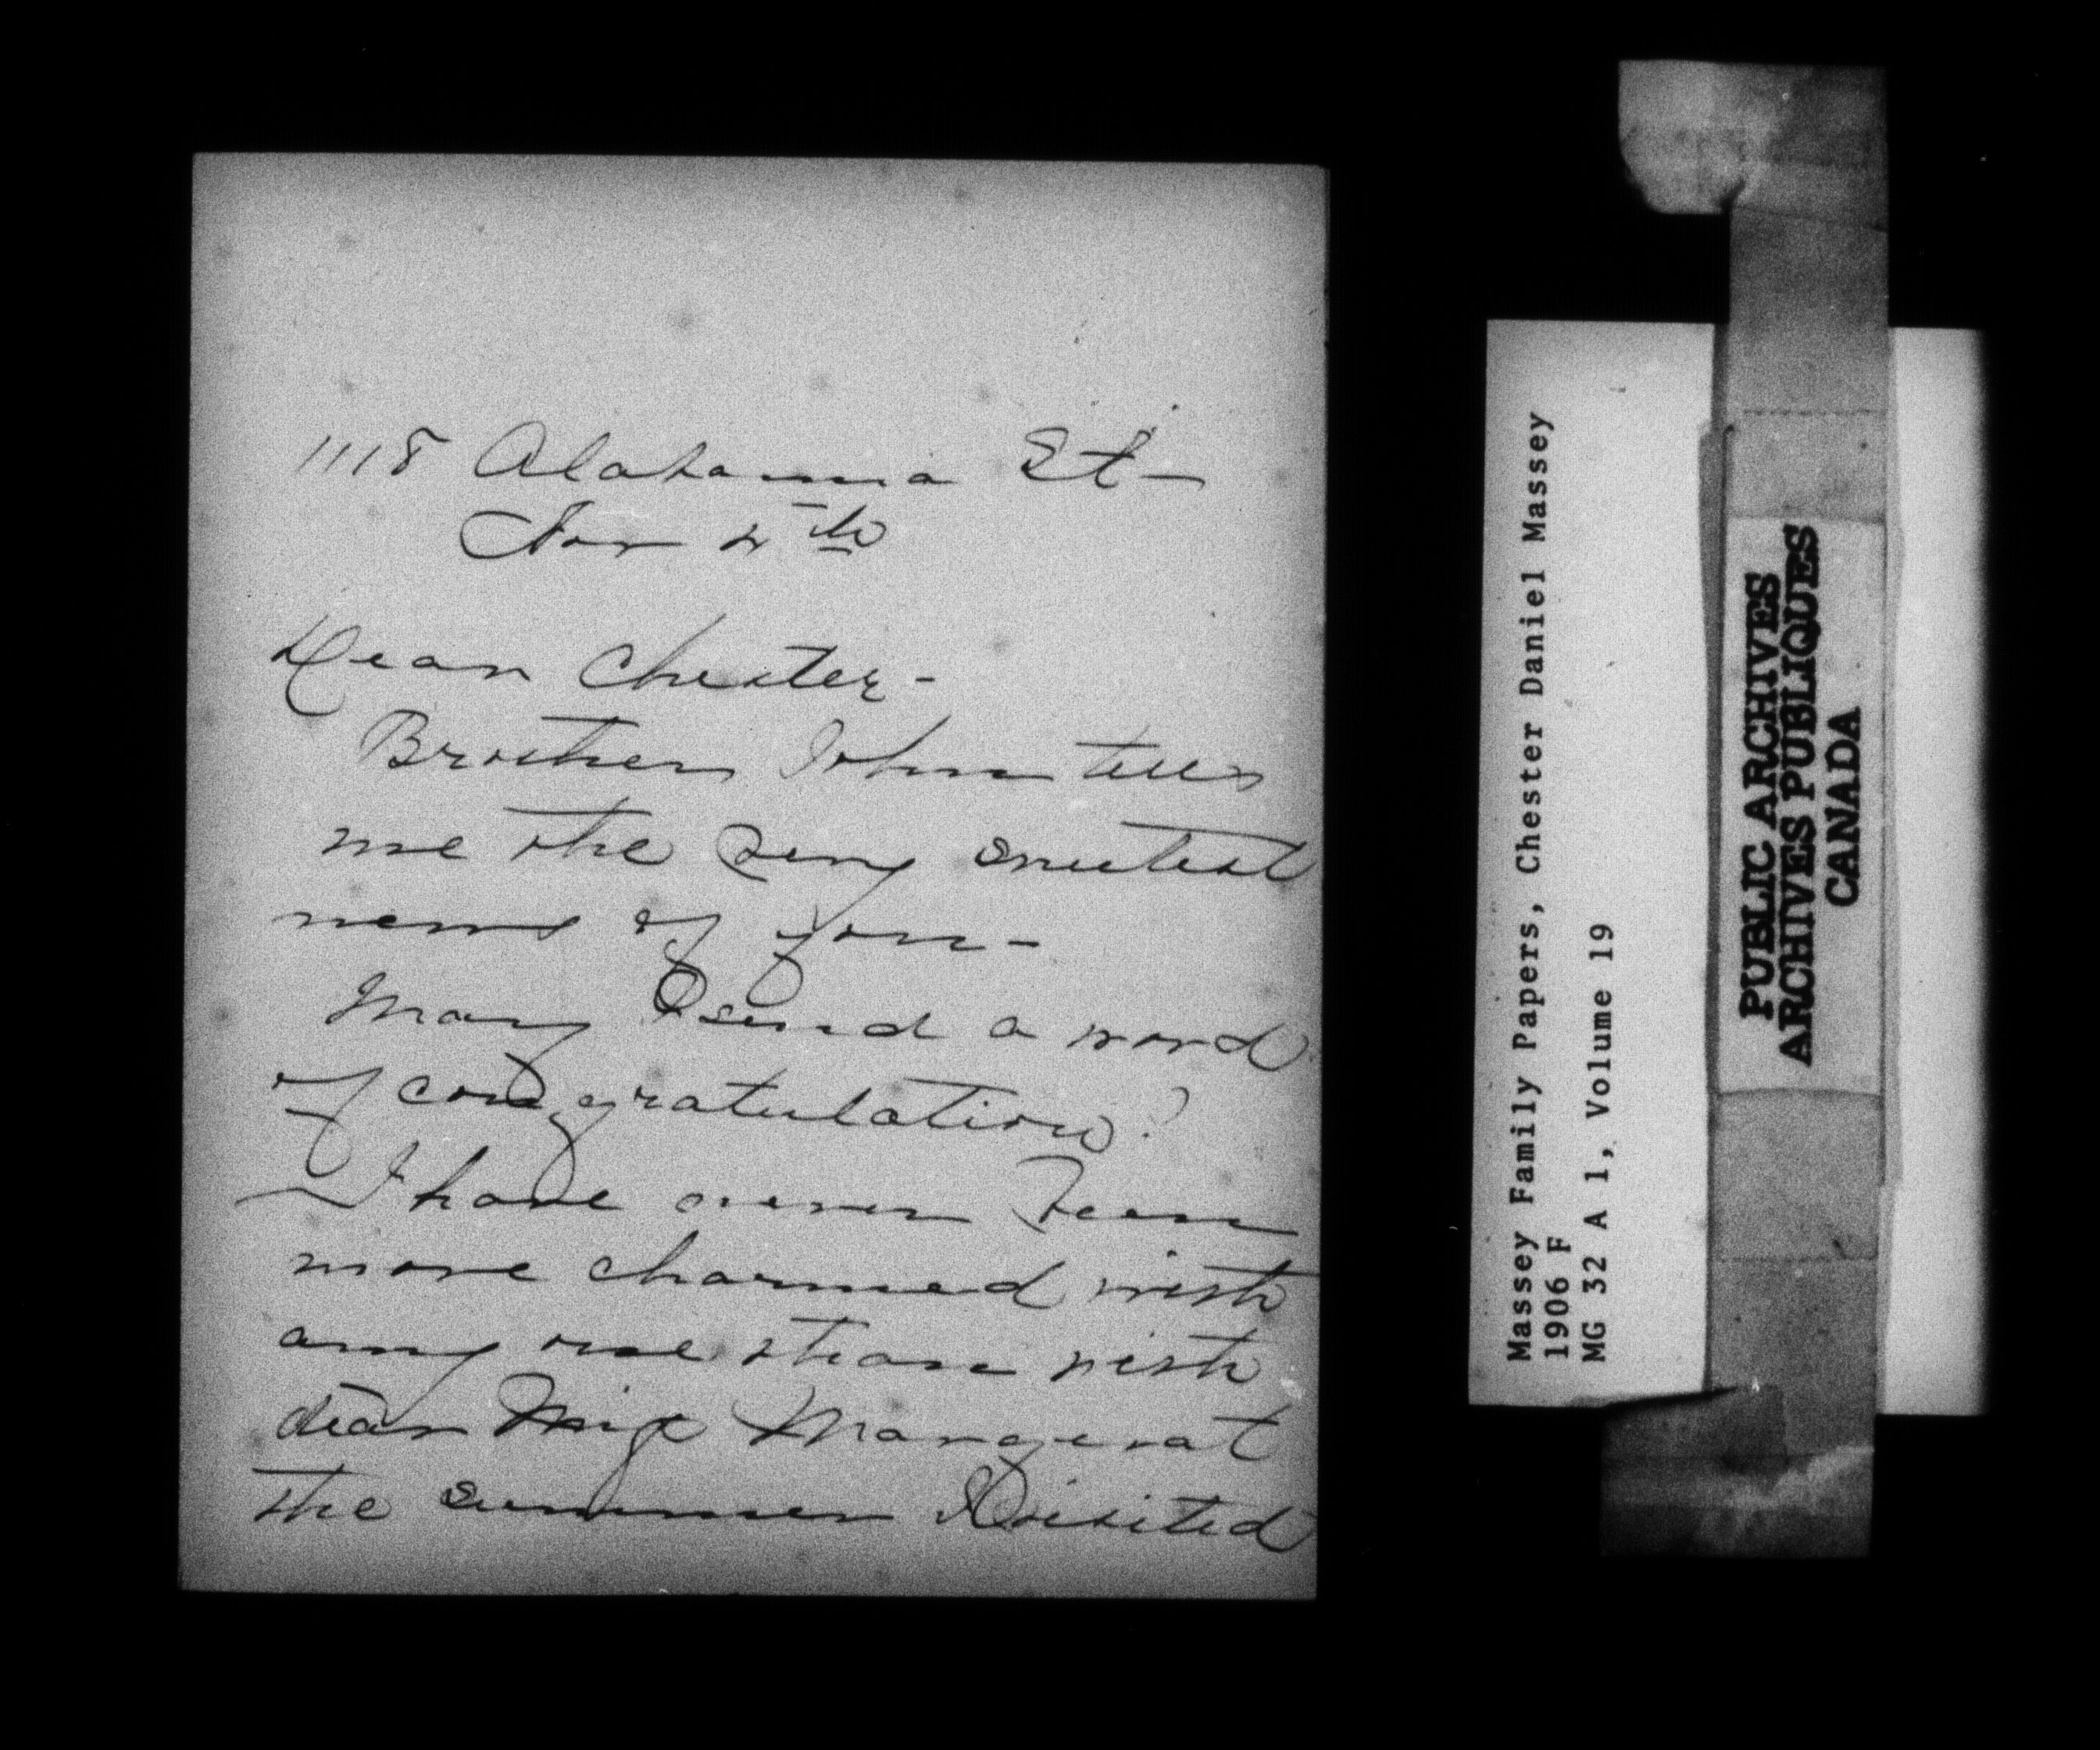 1118 Alabama St-
Nov 5th
Dear Chester-
Brother John tells
me the very sweetest
news of you-
May I send a word
of congratulation?
I have never been
more charmed with
any one than with
dear Miss Margaret
the summer I visited
Massey Family Papers, Chester Daniel Massey
1906 F
MG 32 A 1, Volume 19
PUBLIC ARCHIVES
ARCHIVES PUBLIQUES
CANADA